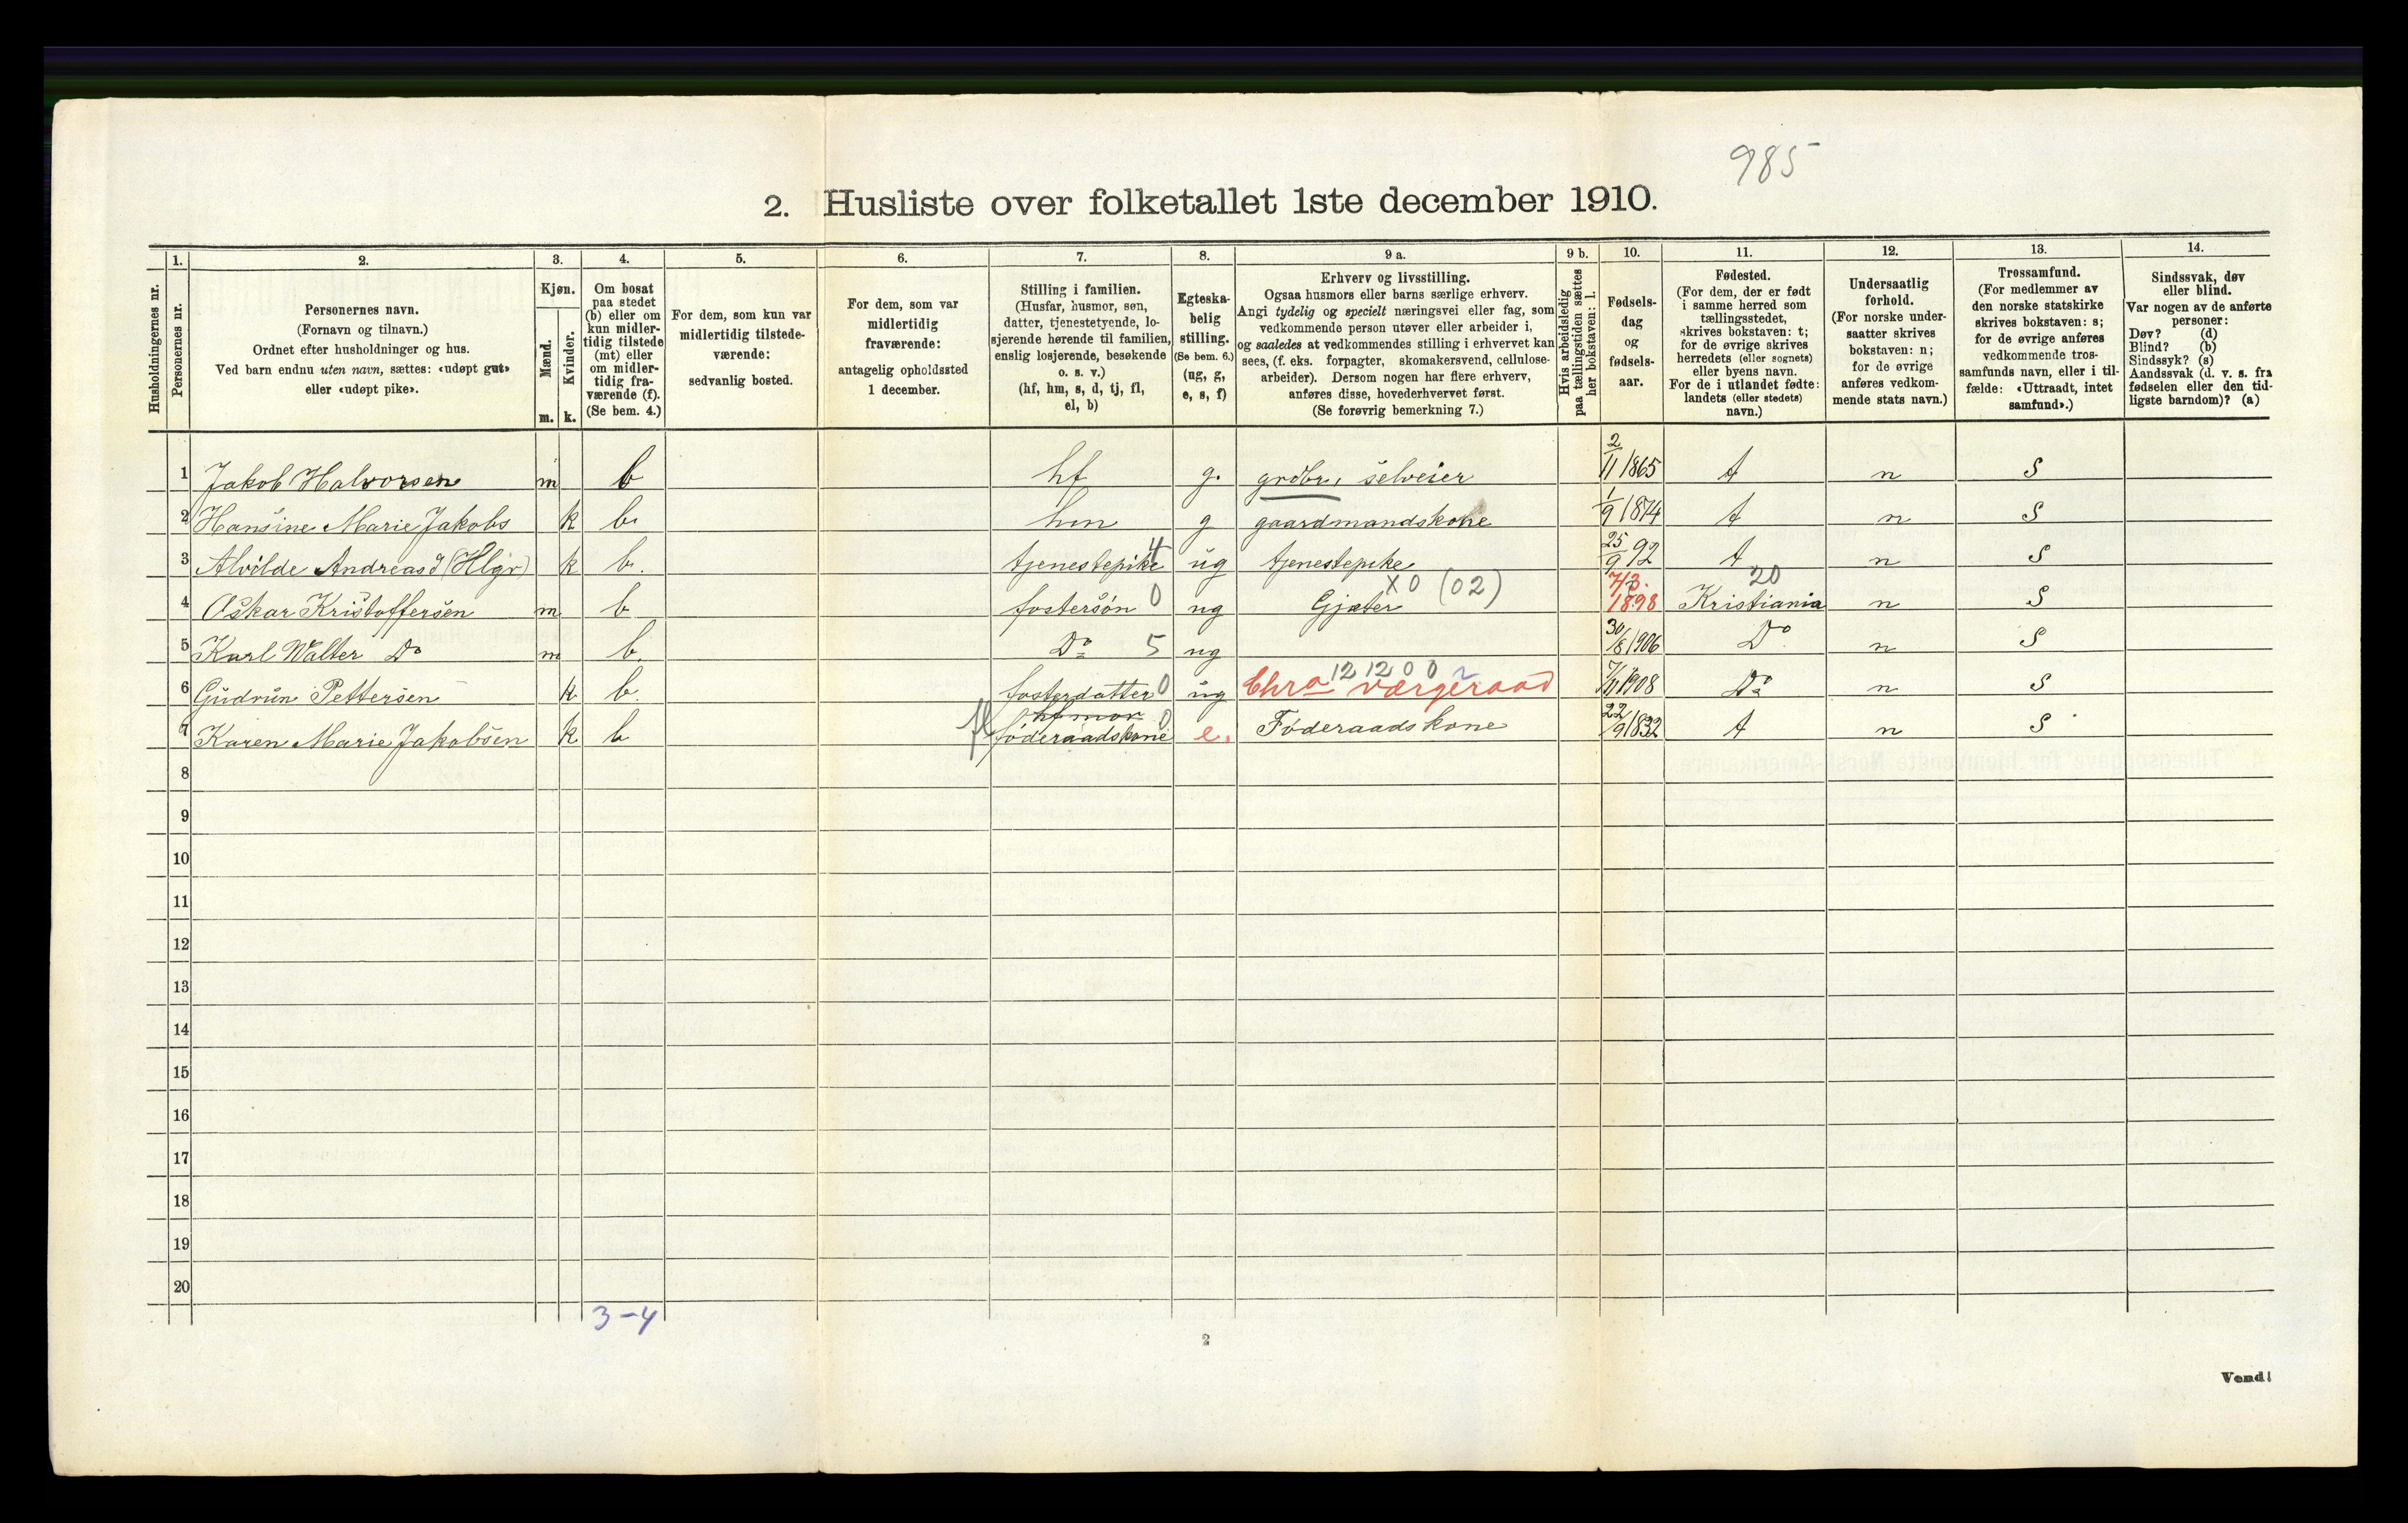 985
2. Husliste over folketallet 1ste december 1910.
Husholdningernes nr.
1. Personernes nr.
2.
Personernes navn.
(Fornavn og tilnavn.)
Ordnet efter husholdninger og hus.
Ved barn endnu uten navn, sættes: «udøpt gut»
eller «udøpt pike».
3.
Kjøn.
Mænd. Kvinder.
m. k.
4.
Om bosat
paa stedet
(b) eller om
kun midler-
tidig tilstede
(mt) eller
om midler-
tidig fra-
værende (f).
(Se bem. 4.)
5.
For dem, som kun var
midlertidig tilstede-
værende:
sedvanlig bosted.
6.
For dem, som var
midlertidig
fraværende:
antagelig opholdssted
1 december.
7.
Stilling i familien.
(Husfar, husmor, søn,
datter, tjenestetyende, lo-
sjerende hørende til familien,
enslig losjerende, besøkende
o. s. v.)
(hf, hm, s, d, tj, fl,
el, b)
8.
Egteska-
belig
stilling.
(Se bem. 6.)
(ug, g,
e, s, f)
9 a.
Erhverv og livsstilling.
Ogsaa husmors eller barns særlige erhverv.
Angi tydelig og specielt næringsvei eller fag, som
vedkommende person utøver eller arbeider i,
og saaledes at vedkommendes stilling i erhvervet kan
sees, (f. eks. forpagter, skomakersvend, cellulose-
arbeider). Dersom nogen har flere erhverv,
anføres disse, hovederhvervet først.
(Se forøvrig bemerkning 7.)
9 b.
Hvis arbeidsledig
paa tællingstiden sættes
her bokstaven: l.
10.
Fødsels-
dag
og
fødsels-
aar.
11.
Fødested.
(For dem, der er født
i samme herred som
tællingsstedet,
skrives bokstaven: t;
for de øvrige skrives
herredets (eller sognets)
eller byens navn.
For de i utlandet fødte:
landets (eller stedets)
navn.)
12.
Undersaatlig
forhold.
(For norske under-
saatter skrives
bokstaven: n;
for de øvrige
anføres vedkom-
mende stats navn.)
13.
Trossamfund.
(For medlemmer av
den norske statskirke
skrives bokstaven: s;
for de øvrige anføres
vedkommende tros-
samfunds navn, eller i til-
fælde: «Uttraadt, intet
samfund».)
14.
Sindssvak, døv
eller blind.
Var nogen av de anførte
personer:
Døv? (d)
Blind? (b)
Sindssyk? (s)
Aandssvak (d. v. s. fra
fødselen eller den tid-
ligste barndom)? (a)
1 Jakob Halvorsen m b hf g. grdbr, selveier 2/11 1865 t n s
2 Hansine Marie Jakobs k b. hm g gaardmandskone 1/9 1874 t n s
3 Alvilde Andreasd (Hlgr) k b. tjenestepike 4 ug tjenestepike 25/9 92 t n s
4 Oskar Kristoffersen m b fostersøn 0 ug Gjæter X0 (02) 7/3. 1898 Kristiania 20 n s
5 Karl Walter Do m b. Do 5 ug 30/8 1906 Do n s
6 Gudrun Pettersen k b. fosterdatter 0 ug Chra værgeraad 12 12 0 0 7/11 1908 Do n s
7 Karen Marie Jakobsen k b fl hf mor føderaadskone 0 e. Føderaadskone 22/9 1832 t n s
8
9
10
11
12
13
14
15
16
17
18
19
20
3-4
2
Vend!